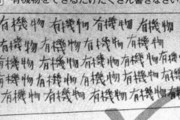 有機物をできるだけたくさん書きなさい
有機物 有機物 有機物 有機物
有機物 有機物 有機物 有機物
有機物 有機物 有機物 有機物 有機物
有機物 有機物 有機物 有機物 有機物
有機物 有機物 有機物 有機物 有機